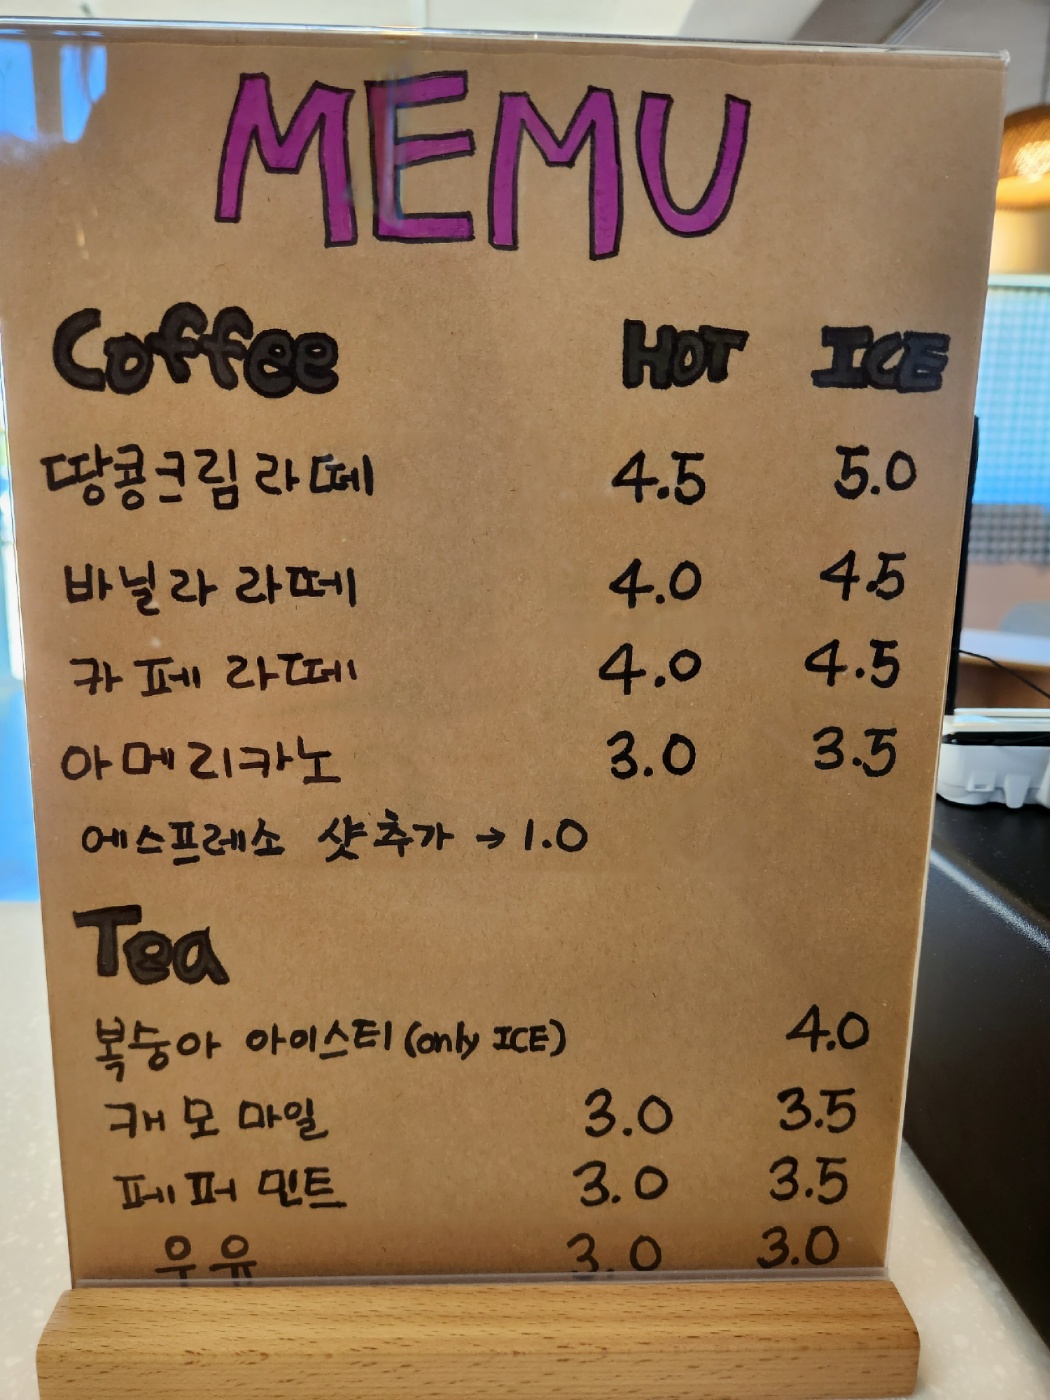 MEMU
Coffee HOT ICE
땅콩크림 라떼 4.5 5.0
바닐라 라떼 4.0 4.5
카페 라떼 4.0 4.5
아메리카노 3.0 3.5
에스프레소 샷추가 → 1.0
Tea
복숭아 아이스티 (only ICE) 4.0
캐모마일 3.0 3.5
페퍼민트 3.0 3.5
우유 3.0 3.0